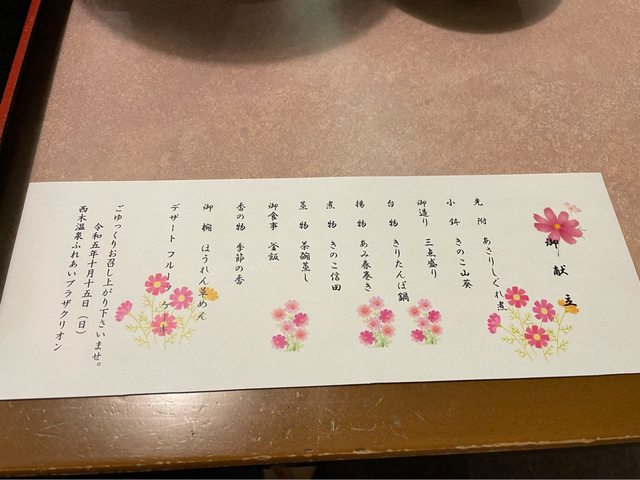 御献立
先附 あさりしぐれ煮
小鉢 きのこ山葵
御造り 三点盛り
台物 きりたんぽ鍋
揚物 あみ春巻き
煮物 きのこ信田
蒸物 茶碗蒸し
御食事 釜飯
香の物 季節の香
御椀 ほうれん草めん
デザート フルーツ ケーキ
ごゆっくりお召し上がり下さいませ。
令和五年十月十五日(日)
西木温泉ふれあいプラザクリオン